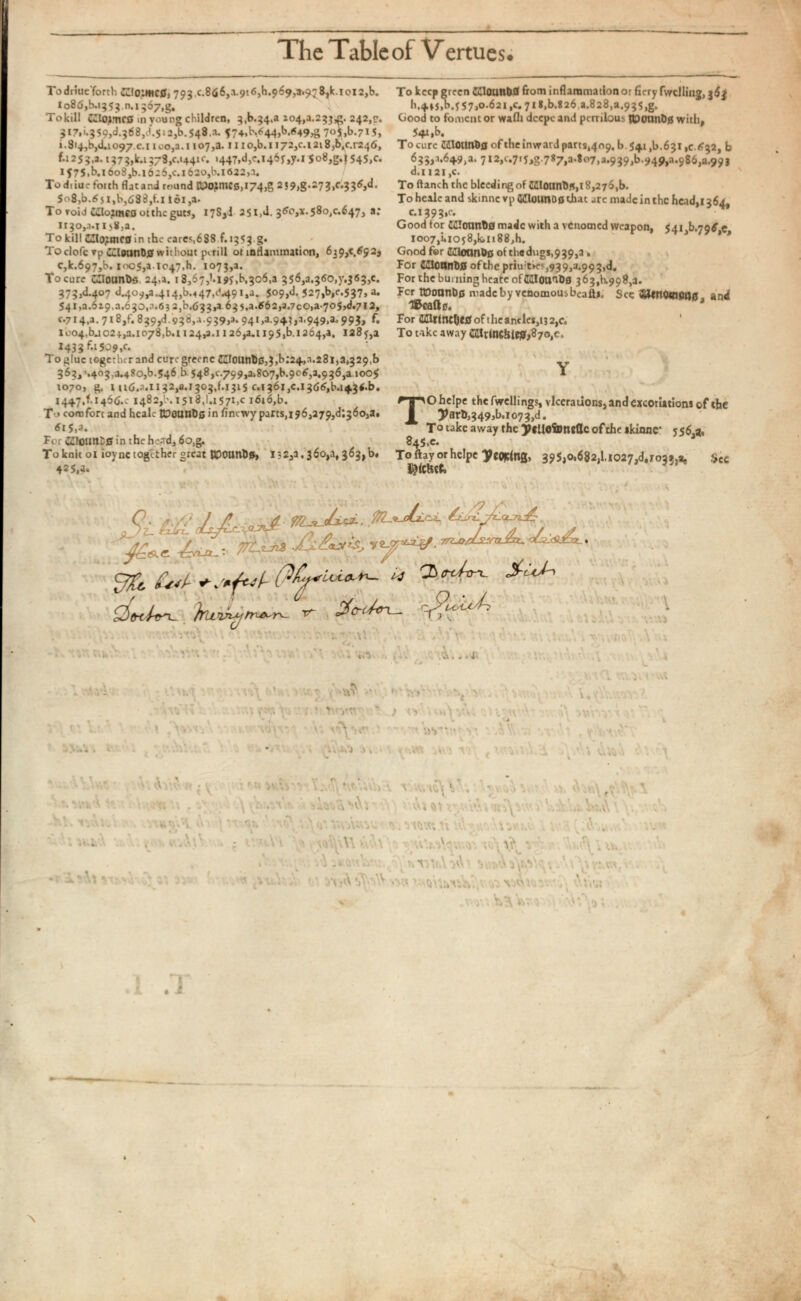 The Table of Vertues.
To driue forth Wormes, 793.c.866,a.916,h.969,a.978,k.1012,b.
1086,b.1353.n.1567,g.
To kill Wormes in young children, 3,b.34,a 104,a.233,g. 242,p.
317,i.359,d.368,d.512,b.548.a. 574,b.644,b.649,g 705,b.715,
i.814,b,d.1097.c.1100,a.1107,a. 1110,b.1172,c.1218,b,c.1246,
f.1253,a.1373,k.1378,c.1441c. 1447,d,c.1465,y.1508,g.1545,c.
1575,b.1608,b.1626,c.1620,b.1622,a.
To driue forth flat and round Wormes,174,g 259,g.273,c.336,d.
508,b.651,b,688,f.1161,a.
To void Wormes of the guts, 178,d 251,d. 360,x.580,c.647, a:
1130,a.1158,a.
To kill Wormes in the eares,688 f.1353 g.
To close vp Wounds without perill of inflammation, 639,c,692,
c,k.697,b. 1005,a.1047,h. 1073,a.
To cure Wounds. 24,a. 18,67,l.195,b,306,a 356,a.360,y.363,c.
373,d.407 d.409,a.414,b.447,d.491,a. 509,d, 527,b,c.537, a.
541,a.629.a.630,a.632,b.633,a 635,a.662,a.700,a.705,d.712,
c.714,a. 718,f. 839,d.938,a.939,a. 941,a.943,a.949,a. 993, f.
1004,b.1024,a.1078,b.1124,a.1126,a.1195,b.1264,a. 1285,a
1433 f.1509,c.
To glue together and cure greene Wounds,3,b:24,a.281,a,329.b
363,.403,a.480,b.546 b 548,c.799,a.807,b.906,a,936,a.1005
1070, g, 1116,a.1132,a.1303,f.1315 c.1361,c.1366,b.1436.b.
1447,f.1466.c 1482,b.1518,l.1571,c 1616,b.
To comfort and heale Wounds in sinewy parts,196,279,d:360,a.
615,a.
For Wounds in the head, 60,g.
To knit or ioyne together great Wounds, 132,a. 360,a, 363, b.
425,a.
To keep green Wounds from inflammation or fiery swelling, 363
h,415,b.557,o.621,c. 718,b.826.a.828,a.935,g.
Good to foment or wash deepe and perrilous Wounds with,
541,b.
To cure Wounds of the inward parts,409. b. 541,b.631,c.632, b
633,a.649,a. 712,c.715,g.787,a.807,a.939,b.949,a.986,a.991
d.1121,c.
To stanch the bleeding of Wounds,18,276,b.
To heale and skinne vp Wounds that are made in the head,1364,
c.1393,c.
Good for Wounds made with a venomed weapon, 541,b.796,e,
1007,i.1058,k.1188,h.
Good for Wounds of the dugs,939,a.
For Wounds of the priuities,939,a.993,d.
For the burning heate of Wounds 363,h.998,a.
For Wounds made by venomous beasts. See Venomous and
Beasts.
For Wrinches of the ancles,132,c.
To take away Wrinckles,870,c.
Y
TO helpe the swellings, vlcerations, and excoriations of the
Yard,349,b.1073,d.
To take away the Yellownesse of the skinne 556,a,
845,e.
To stay or helpe Yexing, 395,o.682,l.1027,d.1039,a, See
Hicket.
The best & safest Physician is Doctor Diet
Doctor Merryman & Doctor Quiet